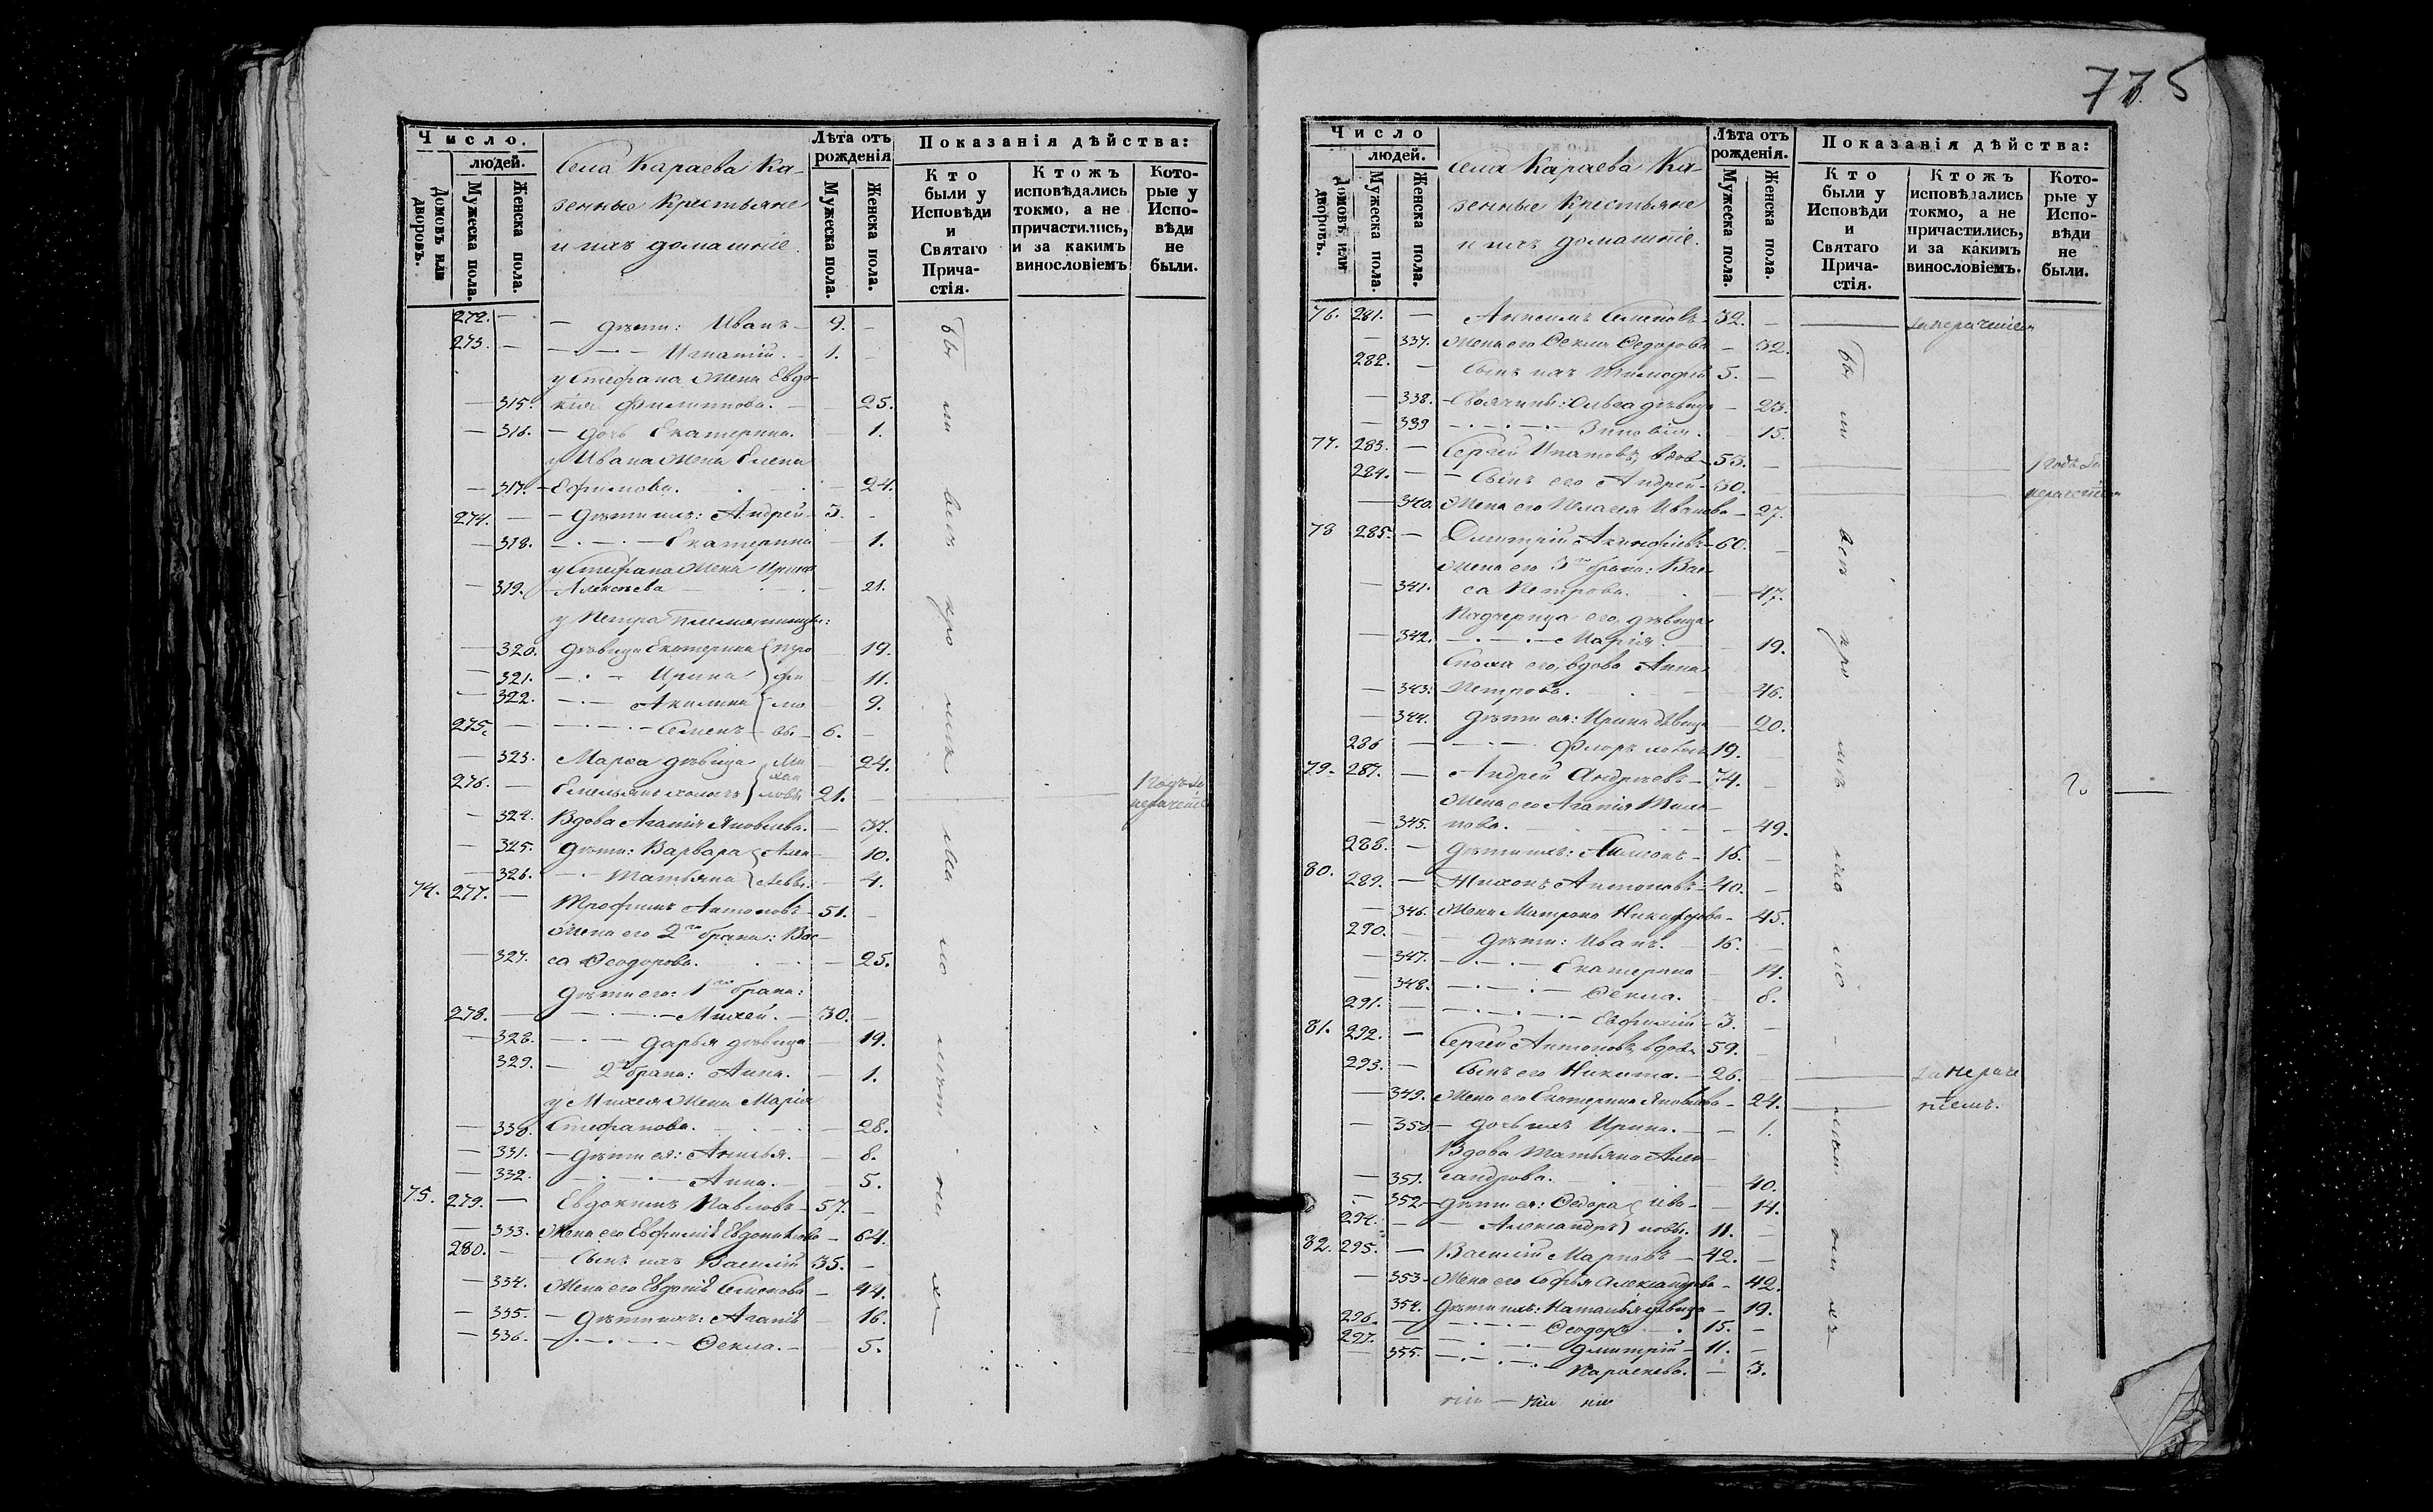 775
Число.
людей.
Домовъ или дворовъ.
Мужеска пола.
Женска пола.
Села Караева Ка-
зенные Крестьяне
и ихъ домашніе.
Лѣта отъ рожденія
Мужеска пола.
Женска пола.
Показанія дѣйства:
Кто были у Исповѣди и Святаго Прича-стія.
Ктожъ исповѣдались токмо, а не причастились, и за какимъ винословіемъ
Кото-рые у Испо-вѣди не были.
272. — — дѣти: Иванъ — 9. —
273. — — Игнатій. — 1. —
у Стефана жена Евдо-
— 315. кія Филиппова. — 25.
— 316. — дочь Екатерина. — 1.
у Ивана жена Елена
— 317. Ефимова. — 24.
274. — — дѣти ихъ: Андрей — 3. —
— 318. — Екатерина — 1.
у Стефана жена Ирина
— 319. Алексѣева — 21.
у Петра племянницы:
— 320. дѣвица Екатерина — 19.
— 321. — Ирина — 11.
— 322. — Акилина — 9.
275. — — Семенъ — 6. —
— 323. Марѳа дѣвица — 24.
276. — Емельянъ холостъ 21. —
— 324. Вдова Агапія Яковлева. — 37.
— 325. дѣти: Варвара — 10.
— 326. — Татьяна — 4.
74. 277. — Трофимъ Антоновъ — 51. —
жена его 2го брака: Вас-
— 327. са Ѳеодорова. — 25.
дѣти его: 1го брака:
278. — — Михей. — 30. —
— 328. — Дарья дѣвица — 19.
— 329. — 2го брака: Анна. — 1.
у Михея жена Марія
— 330. Стефанова. — 28.
— 331. — дѣти ея: Анисья. — 8.
— 332. — Анна. — 5.
75. 279. — Евдокимъ Павловъ — 57. —
— 333. Жена его Евфимія Евдокимова — 64.
280. — Сынъ ихъ Василій 35. —
— 334. Жена его Евдокія Семенова — 44.
— 335. — дѣти ихъ: Агапія — 16.
— 336. — Ѳекла. — 5.
Число
людей.
Домовъ или дворовъ.
Мужеска пола.
Женска пола.
Села Караева Ка-
зенные Крестьяне
и ихъ домашніе.
Лѣта отъ рожденія.
Мужеска пола.
Женска пола.
Показанія дѣйства:
Кто были у Исповѣди и Святаго Прича-стія.
Ктожъ исповѣдались токмо, а не причастились, и за какимъ винословіемъ.
Кото-рые у Испо-вѣди не были.
76. 281. — Анисимъ Семеновъ — 32. —
— 337. Жена его Ѳекла Ѳедорова — 32.
282. — Сынъ ихъ Тимофей 5. —
— 338. Своячины: Ольга дѣвица — 23.
— 339 — Зиновія. — 15.
77. 283. — Сергей Игнатовъ, вдов — 53. —
284. — — Сынъ его Андрей — 30. —
— 340. Жена его Пелагея Иванова — 27.
78 285. — Димитрій Акинфіевъ — 60. —
жена его 3го брака: Вас-
— 341. са Петрова. — 47.
Падчерица его, дѣвица
— 342. — Марія. — 19.
Сноха его, вдова Анна
— 343. Петрова. — 46.
— 344. дѣти ея: Ирина дѣвица — 20.
286 — — Флоръ холостъ 19. —
79. 287. — Андрей Андреевъ — 74. —
Жена его Агапія
— 345. — 49.
288. — дѣти ихъ: — 16. —
80. 289. — Тихонъ Антоновъ — 40. —
— 346. Жена Матрона Никифорова — 45.
290. — дѣти: Иванъ. — 16. —
— 347. — Екатерина — 11.
— 348. — Ѳекла. — 8.
291. — — Евфимій — 3. —
81. 292. — Сергей Антоновъ, вдов 59. —
293. — Сынъ его Никита. — 26. —
— 349. Жена его Екатерина Яковлева — 24.
— 350 — дочь ихъ Ирина. — 1.
Вдова Татьяна Алек-
— 351. сандрова. — 40.
— 352 — дѣти ея: Ѳедора — 14.
294. — — Александръ 11. —
82. 295. — Василій Марковъ — 42. —
— 353 — Жена его Софья Александрова — 42.
— 354. дѣти ихъ: Наталья дѣвица — 19.
296. — — Ѳеодоръ 15. —
297. — — Димитрій — 11. —
— 355. — Параскева. — 3.